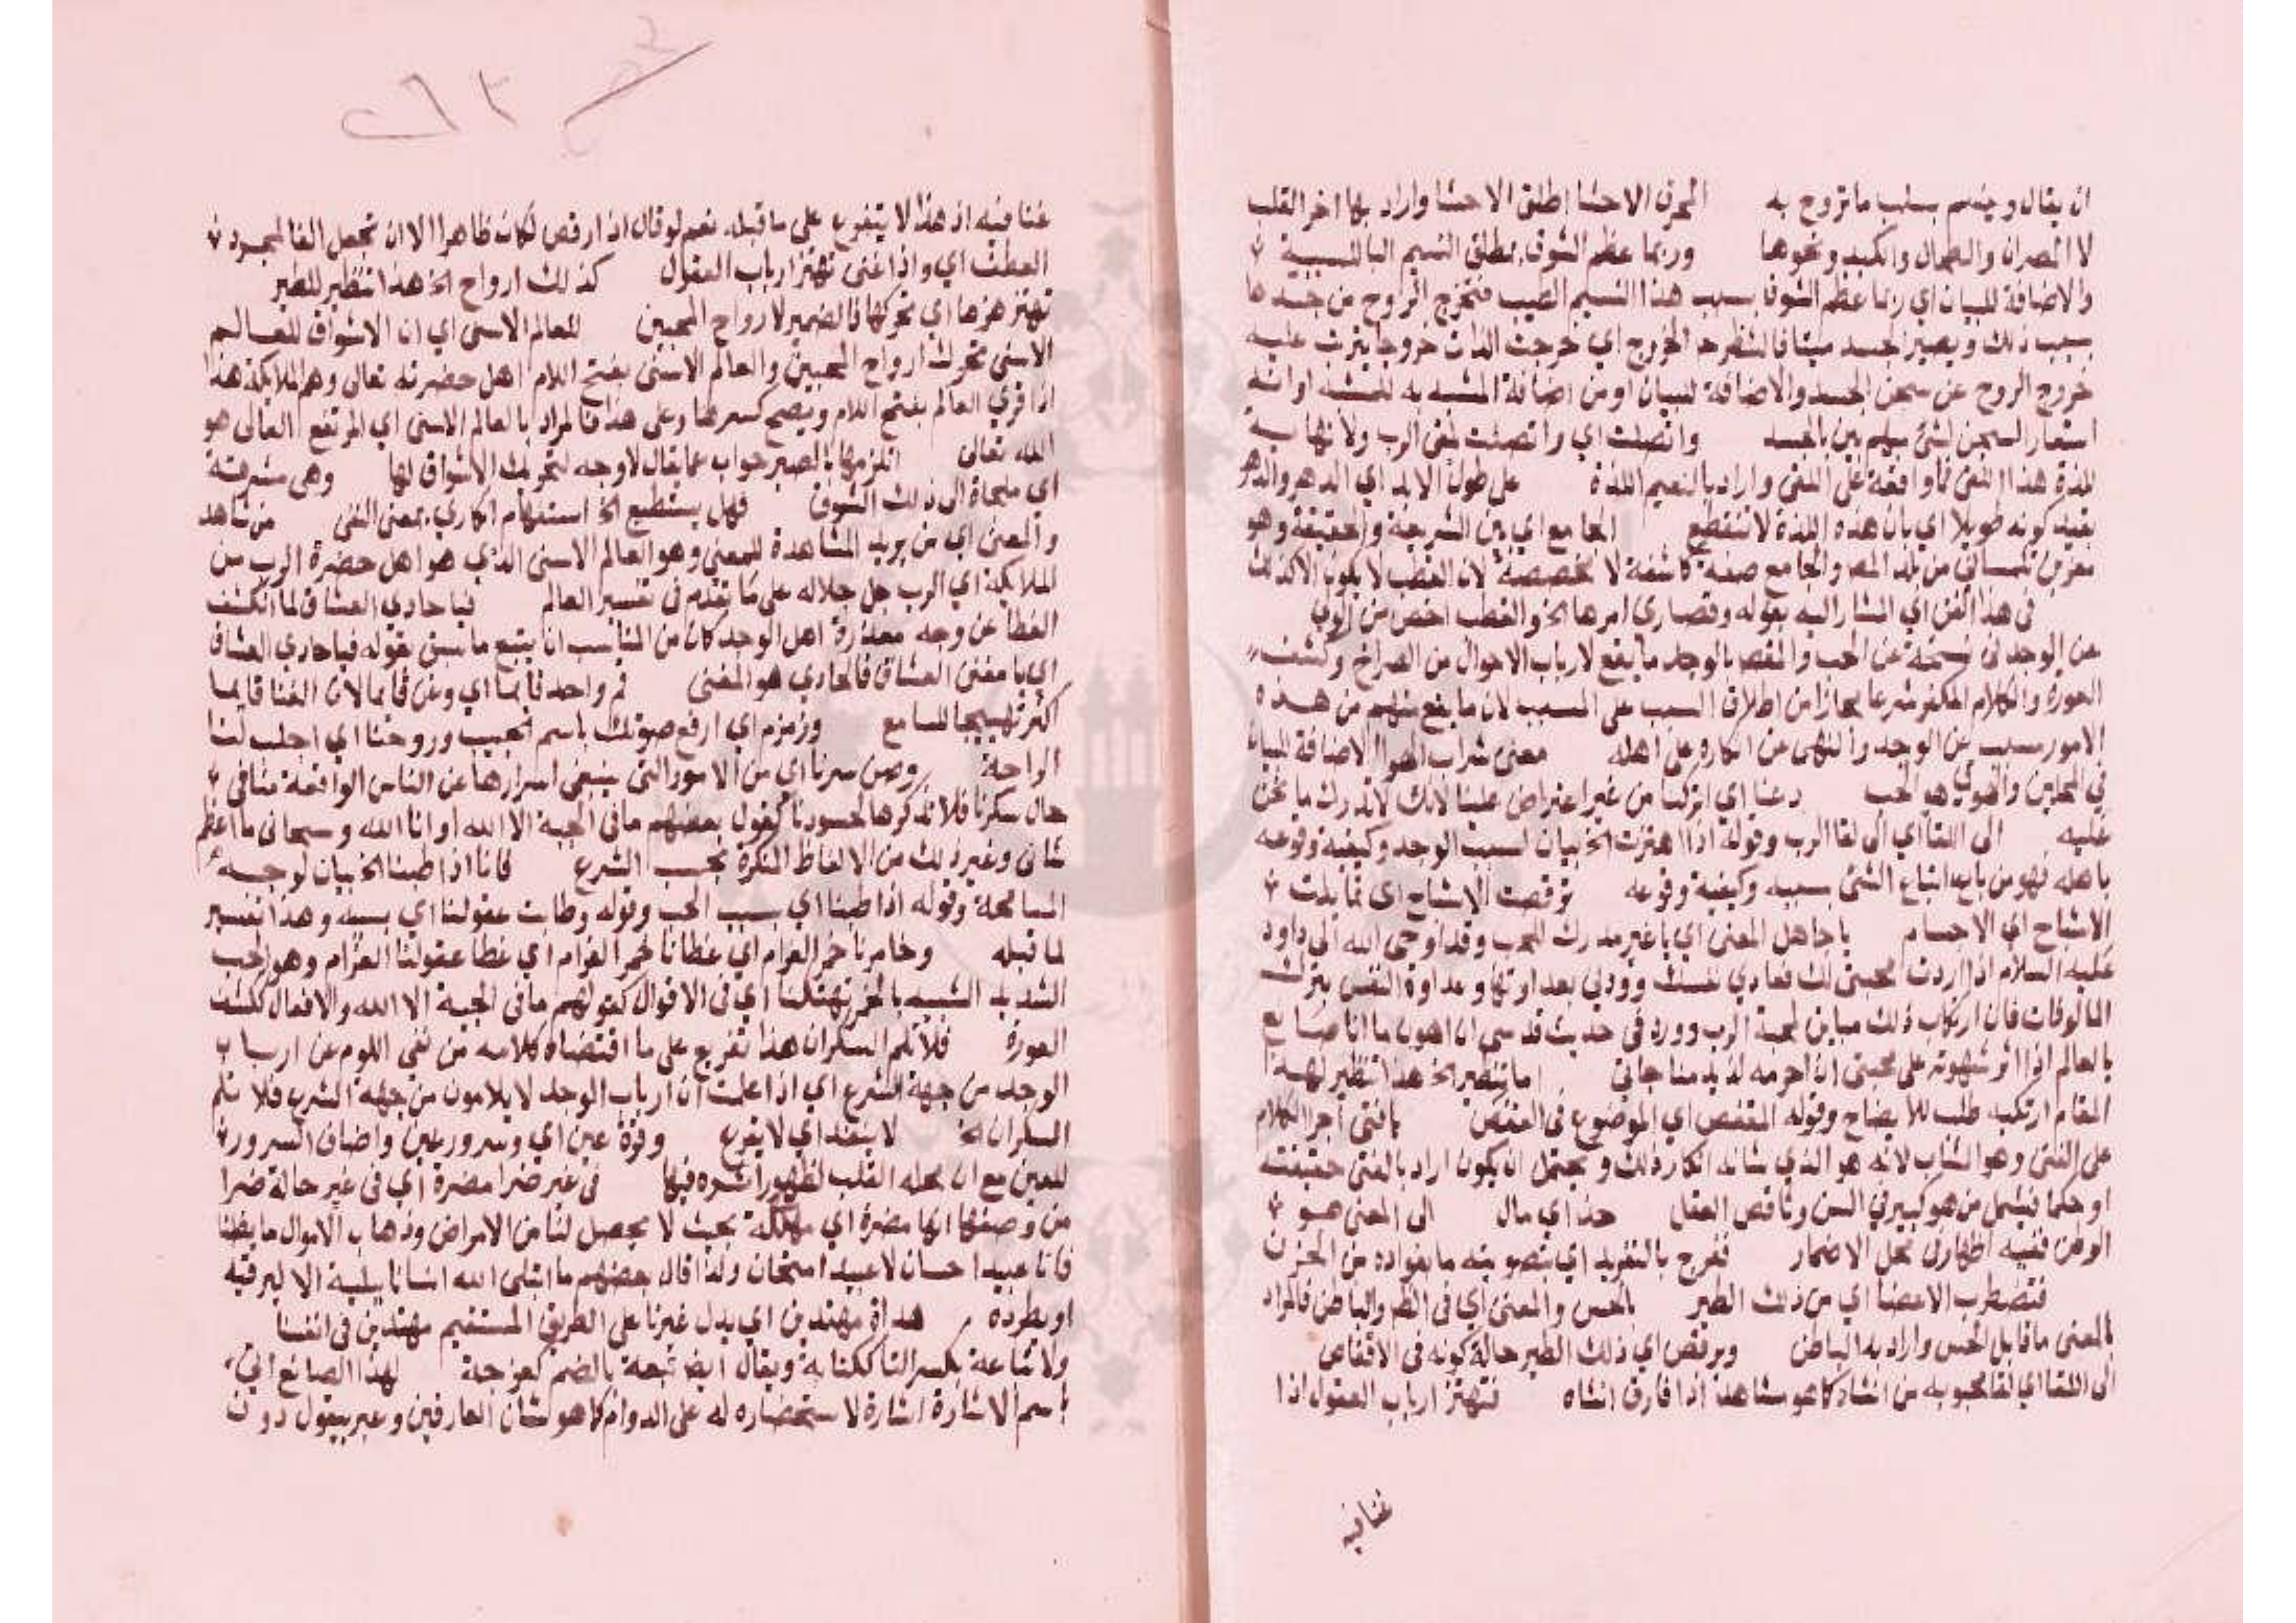 ان يقال وينسم بسلب ما تروح به المحرق الاحشا اطلق الاحشا واراد بها اخر القلب
لا المصران والطحال والكبد ونحوها وربما عظم الشوق بمطلق النسيم البا للسببية
والاضافة للبيان اي ربما عظم الشوق بسبب هذا النسيم الطيب فتخرج الروح من جسدها
بسبب ذلك ويصير الجسد ميتا فالشفرة الخروج اي خرجت الذات خروجا يترتب عليه
خروج الروح عن سجن الجسد والاضافة للبيان او من اضافة المشبه به للمشبه او انه
استعار السجن لشئ مبهم بين بالجسد واتصلت اي واتصلت بلقى الرب ولا نهاية
للذة هذا اللقى فما واقعة على اللقى واراد بالنعيم اللذة على طول الابد اي الدهر والدهر
بقيد كونه طويلا اي بان هذه اللذة لا تنقطع الجامع اي بين الشريعة والحقيقة وهو
مغربي تلمساني من بلد المغرب والجامع صفة كاشفة لا مخصصة لان القطب لا يكون الا كذلك
في هذا الفن اي المشار اليه بقوله وقصارى امرها الخ والقطب اخص من الولي
عن الوجد في نسخة عن الحب والمقصد بالوجد ما يقع لارباب الاحوال من الصراخ وكشف
العورة والكلام المكفر شرعا مجازا من اطلاق السبب على المسبب لان ما يقع منهم من هذه
الامور مسبب عن الوجد والنهي عن انكاره على اهله معنى شراب الهوا الاضافة للبيان
في المحلين والهوى هو الحب دعنا اي اتركنا من غير اعتراض علينا لانك لا تدرك ما نحن
عليه الى اللقا اي الى لقا الرب وقوله اذا اهتزت الخ بيان لسبب الوجد وكيفية وقوعه
باهله فهو من باب اتباع الشئ بسببه وكيفية وقوعه ترقصت الاشباح اي تمايلت
الاشباح اي الاجسام يا جاهل المعنى اي يا غير مدرك للحب وقد اوحى الله الى داود
عليه السلام اذا اردت محبتي لك فعادي نفسك وودني بعداوتها وعداوة النفس بترك
المالوفات فان ارتكاب ذلك مباين لمحبة الرب وورد في حديث قدسي ان اهون ما انا صانع
بالعالم اذا اثر شهوته على محبتي ان احرمه لذيذ مناجاتي اما تنظير الخ هذا تنظير لهذا
المقام ارتكبه طلب للايضاح وقوله المقفص اي الموضوع في القفص يا فتى اجرا الكلام
على الفتى وهو الشاب لانه هو الذي شانه انكار ذلك ويحتمل ان يكون اراد بالفتى حقيقته
او حكما فيشمل من هو كبير في السن وناقص العقل حن اي مال الى المعنى هو
الوطن ففيه اظهار في محل الاضمار ففرج بالتغريد اي بتصويته ما بفواده من الحزن
فتضطرب الاعضا اي من ذلك الطير بالحس والمعنى اي في الظهر والباطن فالمراد
بالمعنى ما قابل الحس واراد به الباطن ويرقص اي ذلك الطير حالة كونه في الاقفاص
الى اللقا اي لقا محبوبه من انشاه كما هو مشاهد اذا فارق انشاه فتهتز ارباب العقول اذا
غنا فيه
غنا فيه اذ هذا لا يتفرع على ما قبله نعم لو قال اذا رقص لكان ظاهرا الا ان تجعل الفا لمجرد
العطف اي واذا غنى تهتز ارباب العقول كذلك ارواح الخ هذا تنظير للطير
تهتز هزها اي تحركها فالضمير لارواح المحبين للعالم الاسنى اي ان الاشواق للعالم
الاسنى تحرك ارواح المحبين والعالم الاسنى بفتح اللام اهل حضرته تعالى وهم الملايكة هذا
اذا قري العالم بفتح اللام ويصح كسرها وعلى هذا فالمراد بالعالم الاسنى اي المرتفع العالى هو
الله تعالى انلزمها بالصبر جواب عما يقال لا وجه لتحريك الاشواق لها وهي مشوقة
اي ملجاة الى ذلك الشوق فهل يستطيع الخ استفهام انكاري بمعنى النفى من شاهد
والمعنى اي من يريد المشاهدة للمعنى وهو العالم الاسنى الذي هو اهل حضرة الرب من
الملايكة اي الرب جل جلاله على ما تقدم في تفسير العالم فيا حادي العشاق لما انكشف
الغطا عن وجه معذرة اهل الوجد كان من المناسب ان يتبع ما سبق بقوله فيا حادي العشاق
اي يا مغنى العشاق فالحادي هو المغنى قم واحد قايما اي وغن قايما لان الغنا قايما
اكثر تهييجا للسامع وزمزم اي ارفع صوتك باسم الحبيب وروحنا اي اجلب لنا
الراحة وصن سرنا اي من الامور التى ينبغي اسرارها عن الناس الواقعة منا في
حال سكرنا فلا تذكرها لحسودنا كقول بعضهم ما في الجبة الا الله او انا الله وسبحاني ما اعظم
شاني وغير ذلك من الالفاظ المنكرة بحسب الشرع فانا اذا طبنا الخ بيان لوجه
المسامحة وقوله اذا طبنا اي بسبب الحب وقوله وطابت عقولنا اي بسببه وهذا تفسير
لما قبله وخامرنا خمر الغرام اي غطانا خمر الغرام اي غطا عقولنا الغرام وهو الحب
الشديد الشبيه بالخمر تهتكنا اي في الاقوال كقولهم ما في الجبة الا الله والافعال ككشف
العورة فلا تلم السكران هذا تفريع على ما اقتضاه كلامه من نفي اللوم عن ارباب
الوجد من جهة الشرع اي اذا علمت ان ارباب الوجد لا يلامون من جهة الشرع فلا تلم
السكران الخ لا ينفد اي لا يفرغ وقرة عين اي وسرور عين واضاف السرور
للعين مع ان محله القلب لظهور اثره فيها في غير ضرا مضرة اي في غير حالة ضرا
من وصفها انها مضرة اي مهلكة بحيث لا يحصل لنا من الامراض وذهاب الاموال ما يضنا
فانا عبيد احسان لا عبيد امتحان ولذا قال بعضهم ما ابتلى الله انسانا ببلية الا ليرقيه
او يطرده هداة مهتدين اي يدل غيرنا على الطريق المستقيم مهتدين في انفسنا
ولا تباعة بكسر التا ككتابة ويقال ايضا تبعة بالضم كغرفة لهذا الصانع اتى
باسم الاشارة اشارة لاستحضاره له على الدوام كما هو شان العارفين وعبر بيقول دون